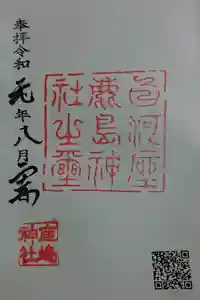 奉拝令和
元年八月
河座
鹿島神
社之璽
鹿嶋
神社